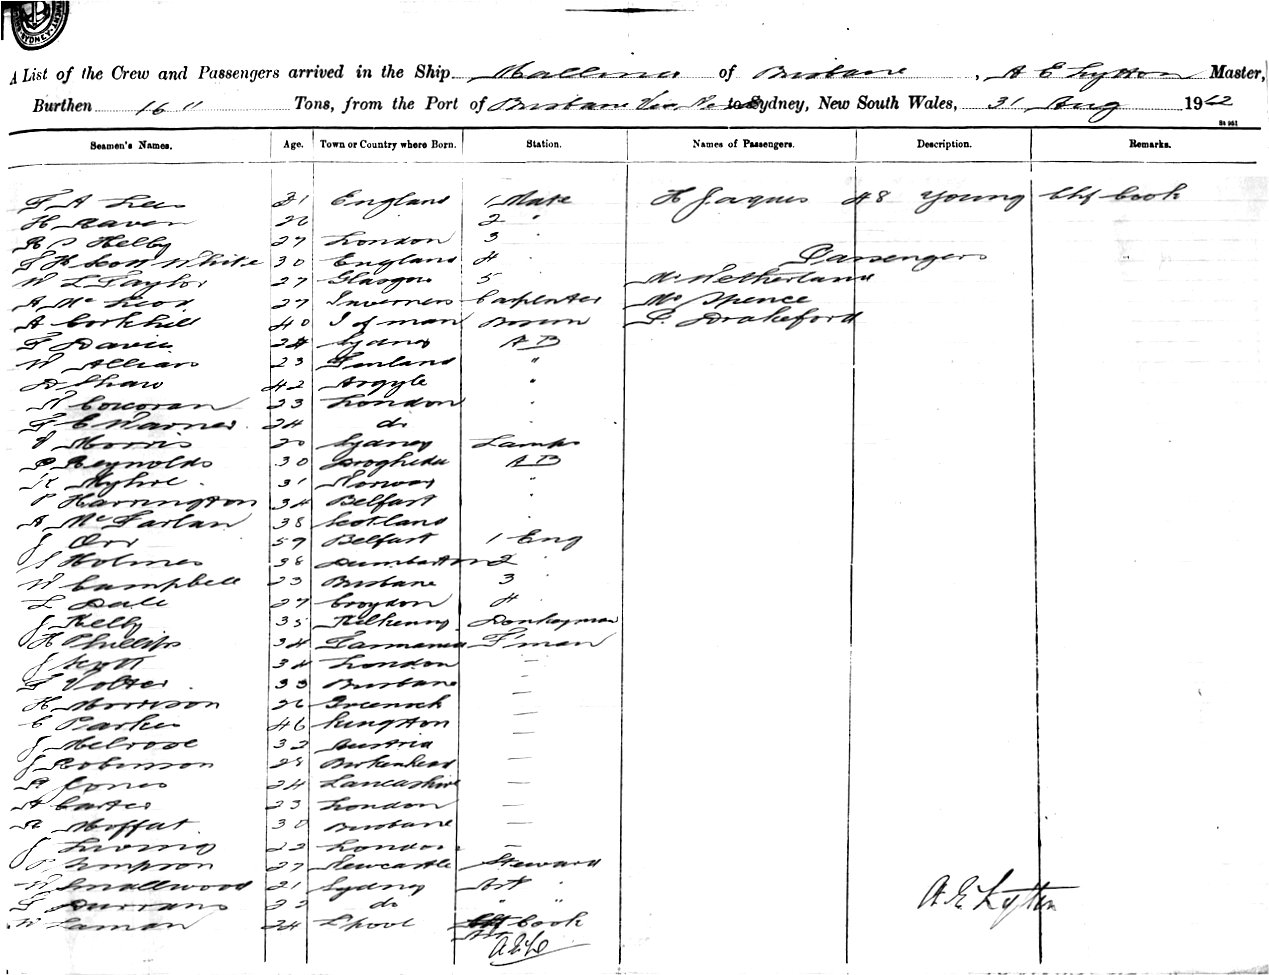 A List of the Crew and Passengers arrived in the Ship Mallina of Brisbane, A E Lytton Master,
Burthen 16 " Tons, from the Port of Brisbane Via to Sydney, New South Wales, 31 Aug 19
Seamen's Names. Age. Town or Country where Born. Station. Names of Passengers. Description. Remarks.
F A Lees 31 England 1 Mate H Jaques 48 Young Chf Cook
H Raven 26 2 "
R P Helby 27 London 3 "
F H Scott White 30 England 4 " Passengers
W L Taylor 27 Glasgow 5 Mr Netherland
A McLeod 27 Inverness Carpenter Mr Spence
A Corkhill 40 I of man Bosun P. Drakeford
F Davis 24 Sydney A B
W Allian 23 Finland "
D Shaw 42 Argyle "
P Corcoran 23 London "
F E Warner 24 do "
V Morris 20 Sydney Lamps
P Reynolds 30 Drogheda A B
K Myhre 31 Norway "
P Harrington 34 Belfast "
A McFarlan 38 Scotland "
J Orr 59 Belfast 1 Eng
J Holmes 38 Dumbarton 2 "
W Campbell 23 Brisbane 3 "
L Dale 27 Croydon 4 "
J Kelly 35 Kilkenny Donkeyman
H Phillips 34 Tasmania F'man
J Scott 34 London —
F Volter 33 Brisbane —
H Morrison 26 Greenock —
C Parker 46 Kingston —
J Melrose 32 Austria —
J Robinson 28 Birkenhead —
R Jones 24 Lancashire —
A Carter 23 London —
R Moffat 30 Brisbane —
J Irving 22 London —
P Simpson 27 Newcastle Steward
W Smallwood 21 Sydney Ast "
F Durrans 22 do " "
W Laman 24 L'pool Cook
Ast
A.E.L.
A. E. Lytton